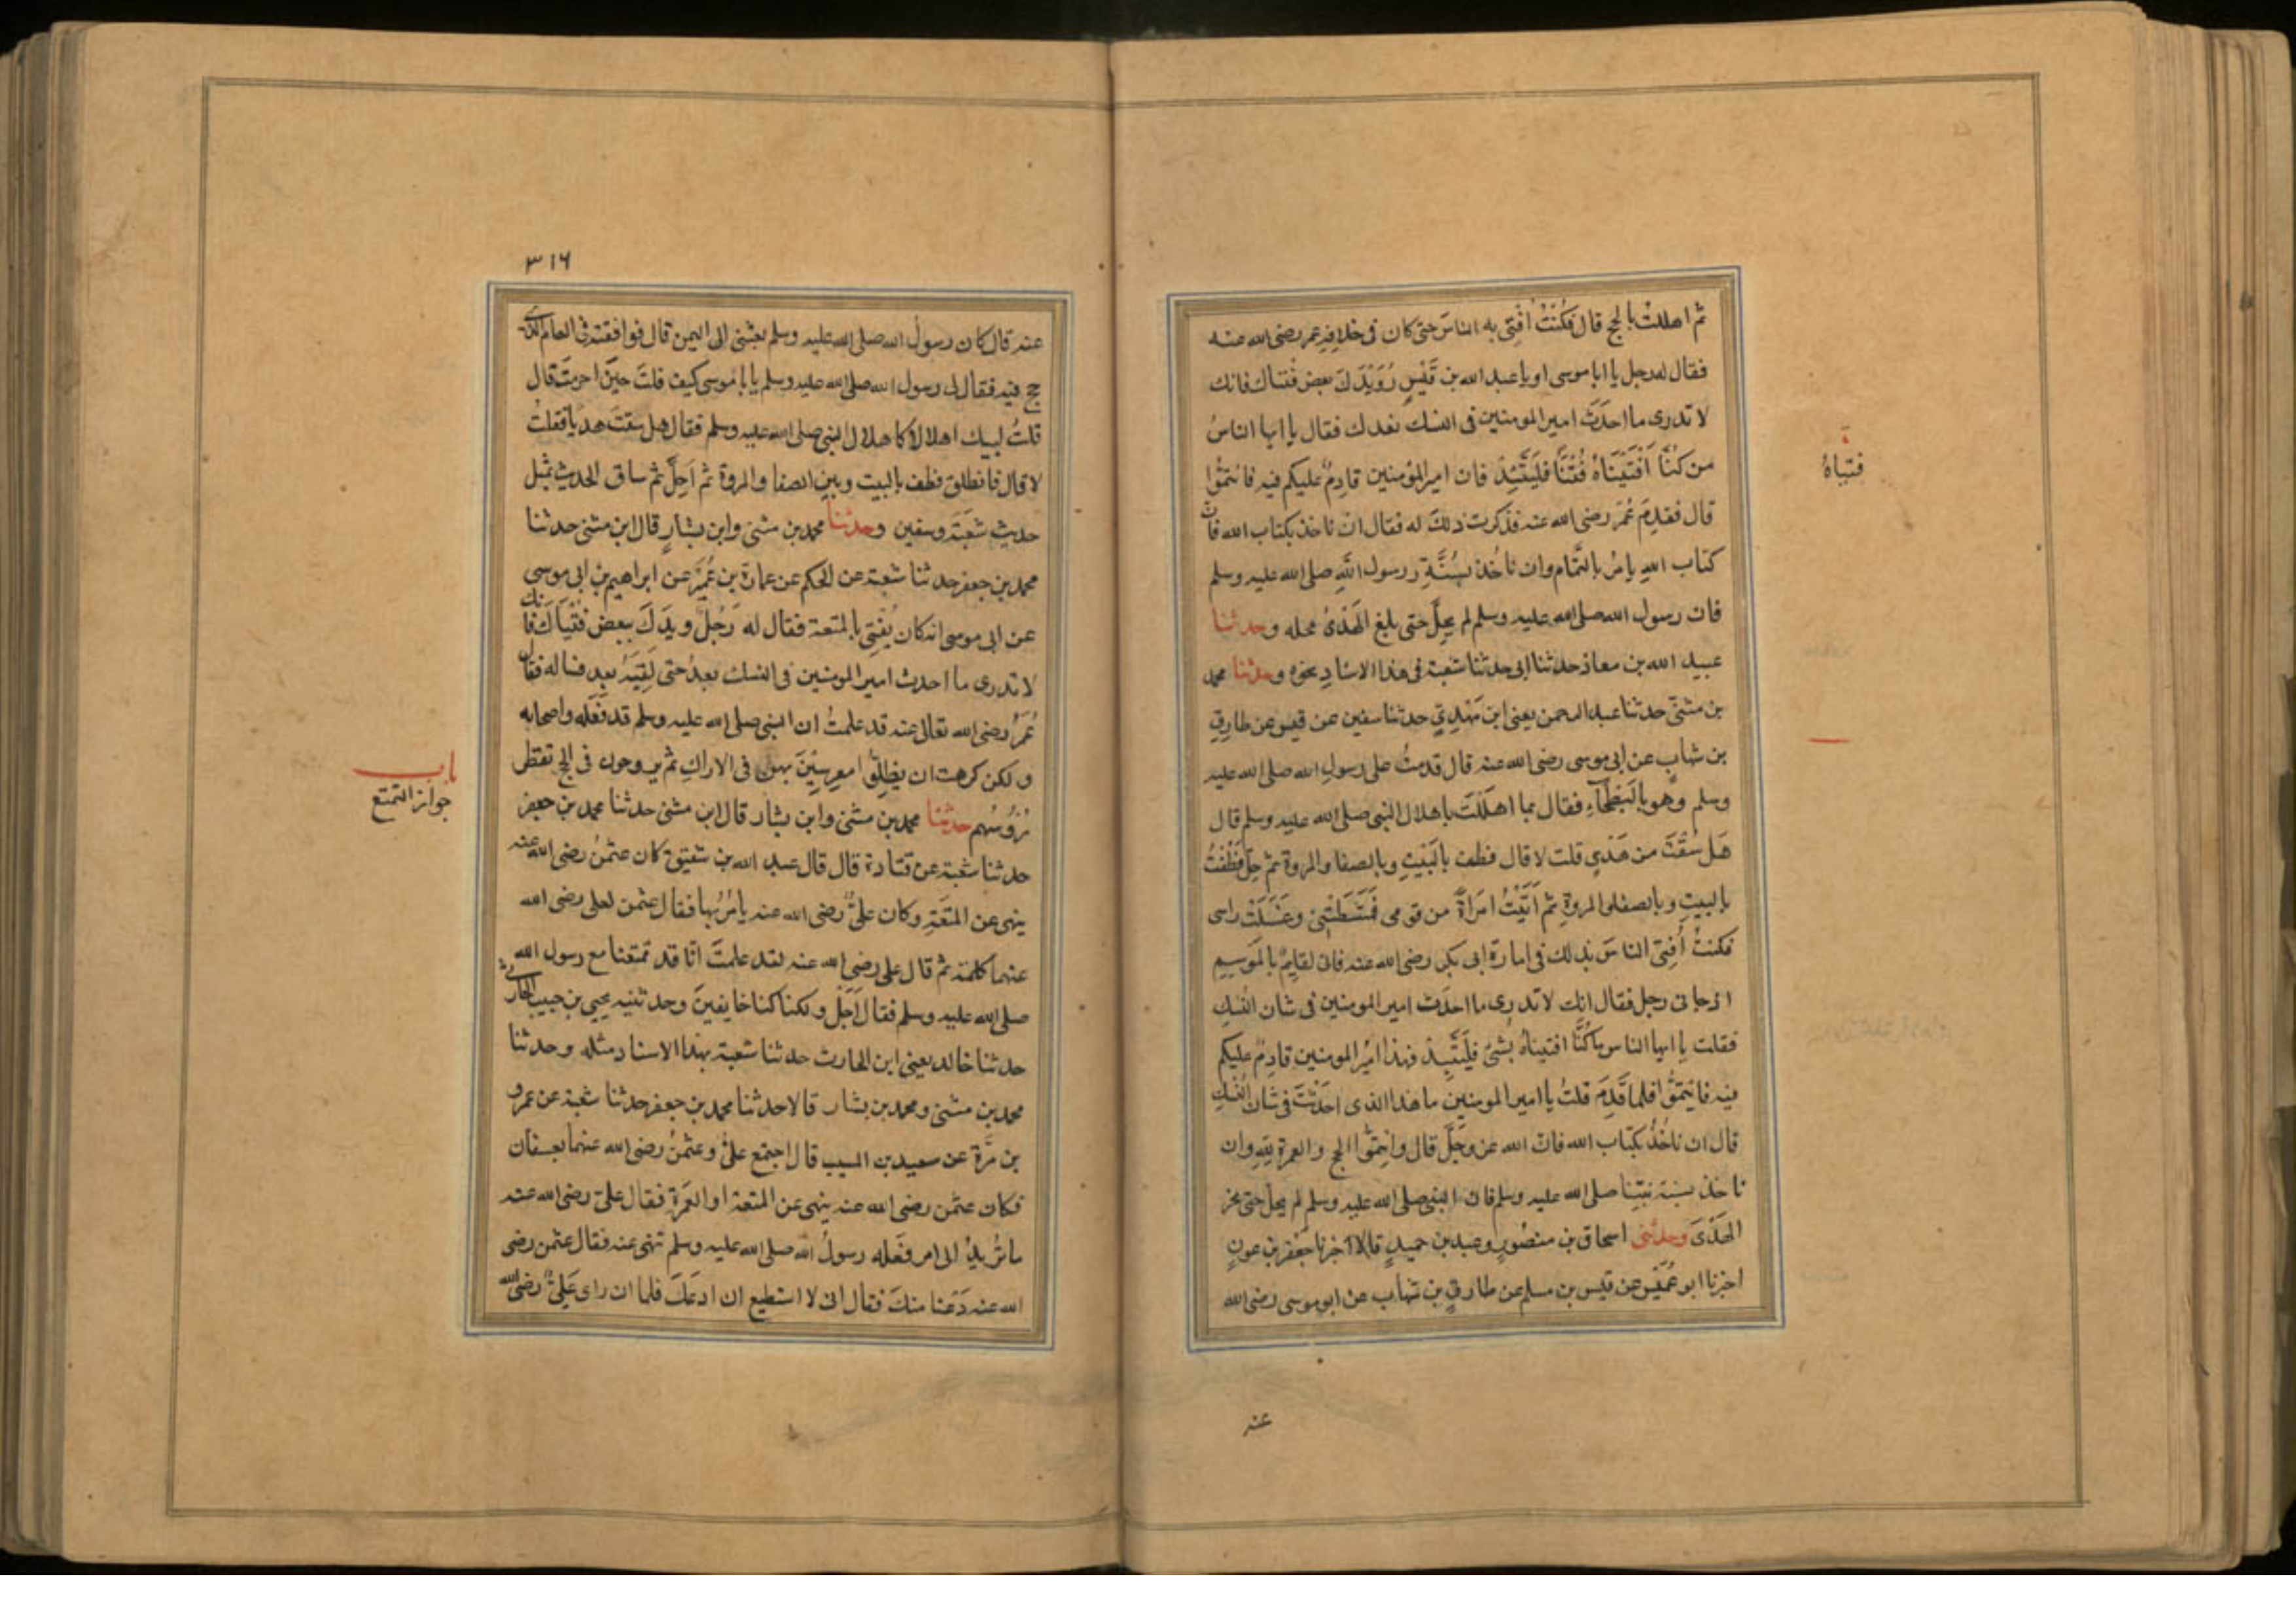 ثم اهللتُ بالحج قال فكُنتُ اُفتِى به الناسَ حتى كان فى خلافةِ عمر رضى الله عنه
فقال له رجل يا ابا موسى او يا عبد الله بن قَيْسٍ رُوَيْدَكَ بعض فُتْياك فانك
لا تدرى ما احدَثَ امير المومنين فى النسك بعدك فقال يا ايها الناسُ
من كُنَّا اَفْتَيْنَاهُ فُتْيًا فَليَتَّئِدْ فان امير المؤمنين قادِمٌ عليكم فيه فائتمُّوا
فتياهُ
قال فقدِمَ عُمَر رضى الله عنه فذكرت ذلكَ له فقال ان ناخذ بكتاب الله فان
كتاب اللهِ يامُر بالتَّمام وان ناخُذ بسُنَّةِ رسول اللهِ صلى الله عليه وسلم
فان رسول الله صلى الله عليه وسلم لم يحِلَّ حتى بلغ الهَدْىُ محله وحدثنا
عبيد الله بن معاذ حدثنا ابى حدثنا شعبة فى هذا الاسنادِ نحوه وحدثنا محمد
بن مثنّى حدثنا عبد الرحمن يعنى ابن مَهْدِيٍّ حدثنا سفين عن قيس عن طارِقِ
بن شهابٍ عن ابى موسى رضى الله عنه قال قدمتُ على رسولِ الله صلى الله عليه
وسلم وهو بالبَطْحَآءِ فقال بما اهلَلْتَ باهلال النبى صلى الله عليه وسلم قال
هَل سُقْتَ من هَدْيٍ قلت لا قال فطف بالبَيْتِ وبالصفا والمروة ثم حِلَّ فطُفْتُ
بالبيتِ وبالصفا والمروةِ ثم اَتَيْتُ امرَاةً من قومى فَمَشَطَتْنِى وغَسَلَتْ راسى
فكنتُ اُفتِى الناسَ بذلك فى امارة ابى بكر رضى الله عنه فانى لقايِمٌ بالمَوسِمِ
اذ جانى رجل فقال اِنك لا تدرِى ما احدَث امير المومنين فى شان النُسُكِ
فقلت يا ايها الناس ما كُنَّا افتيناهُ بِشَىْءٍ فليَتَّئِدْ فهذا اميرُ المومنين قادِمٌ عليكم
فيه فائتمُّوا فلما قَدِمَ قلتُ يا امير المومنين ما هذا الذى احدَثْتَ فى شان النُّسُكِ
قال ان ناخُذْ بكتاب الله فان الله عز وجَلَّ قال واتِمُّوا الحج والعمرةَ للهِ وان
ناخذ بسنة نبيِّنا صلى الله عليه وسلم فان النبى صلى الله عليه وسلم لم يحل حتى نحر
الهَدْىَ وحدثنى اسحاق بن منصُورٍ وعبد بن حميدٍ قالا اخبرنا جَعْفر بن عونٍ
اخبرنا ابو عُمَيْسٍ عن قيس بن مسلم عن طارِقِ بن شهاب عن ابو موسى رضى الله
عنه
٣١٦
عنه قال كان رسولُ الله صلى الله عليه وسلم بعثنى الى اليمن قال فوافقته فى العام الذى
حج فيه فقال لى رسول الله صلى الله عليه وسلم يا با موسى كيف قلتَ حِينَ احرمتَ قال
قلتُ لبيك اهلالا كاهلال النبى صلى الله عليه وسلم فقال هل سقتَ هديًا فقلت
لا قال فانطلق فطف بالبيت وبين الصفا والمروة ثم اَحِلَّ ثم ساق الحديث بمثل
حديث شُعْبَةَ وسفين وحدثنا محمد بن مثنى وابن بشارٍ قال ابن مثنى حدثنا
محمد بن جعفر حدثنا شعبة عن الحكم عن عمارة بن عُمَيْرٍ عن ابراهيم بن ابى موسى
عن ابى موسى انه كان يُفتِى بالمتعة فقال له رَجُلٌ رويدكَ ببعض فُتْيَاكَ فانك
لا تدرى ما احدث امير المومنين فى النسك بعدُ حتى لَقِيَهُ بعد فساله فقال
عُمَرُ رضى الله تعالى عنه قد علمتُ ان النبى صلى الله عليه وسلم قد فعَله واصحابه
ولكن كرهت ان يظلُّوا معرِسِيْنَ بهن فى الاراكِ ثم يروحون فى الحج تقطر
رُؤُسُهم حدثنا محمد بن مثنى وابن بشار قال ابن مثنى حدثنا محمد بن جعفر
باب
جواز التمتع
حدثنا شعبة عن قتادة قال قال عبد الله بن شقيق كان عثمنُ رضى الله عنه
ينهى عن المتعَةِ وكان علىٌّ رضى الله عنه يامُرُ بها فقال عثمن لعلى رضى الله
عنهما كلمة ثم قال على رضى الله عنه لقد علمتَ انّا قد تمتعنا مع رسول الله
صلى الله عليه وسلم فقال اَجَلْ ولكنا كنا خايفينَ وحدثنيه يحيى بن حبيب الحارثى
حدثنا خالد يعنى ابن الحارث حدثنا شعبة بهذا الاسناد مثله وحدثنا
محمد بن مثنى ومحمد بن بشار قالا حدثنا محمد بن جعفر حدثنا شعبة عن عمرو
بن مُرَّة عن سعيد بن المسيب قال اجتمع علىٌّ وعثمنُ رضى الله عنهما بعسفان
فكان عثمن رضى الله عنه ينهى عن المتعة او العُمرةِ فقال علىّ رضى الله عنه
ما تُريدُ الى امر فعَله رسولُ الله صلى الله عليه وسلم تنهى عنه فقال عثمن رضى
الله عنه دَعْنا منكَ فقال انى لا استطيع ان ادعَكَ فلما ان راى عَلِىٌّ رضى الله